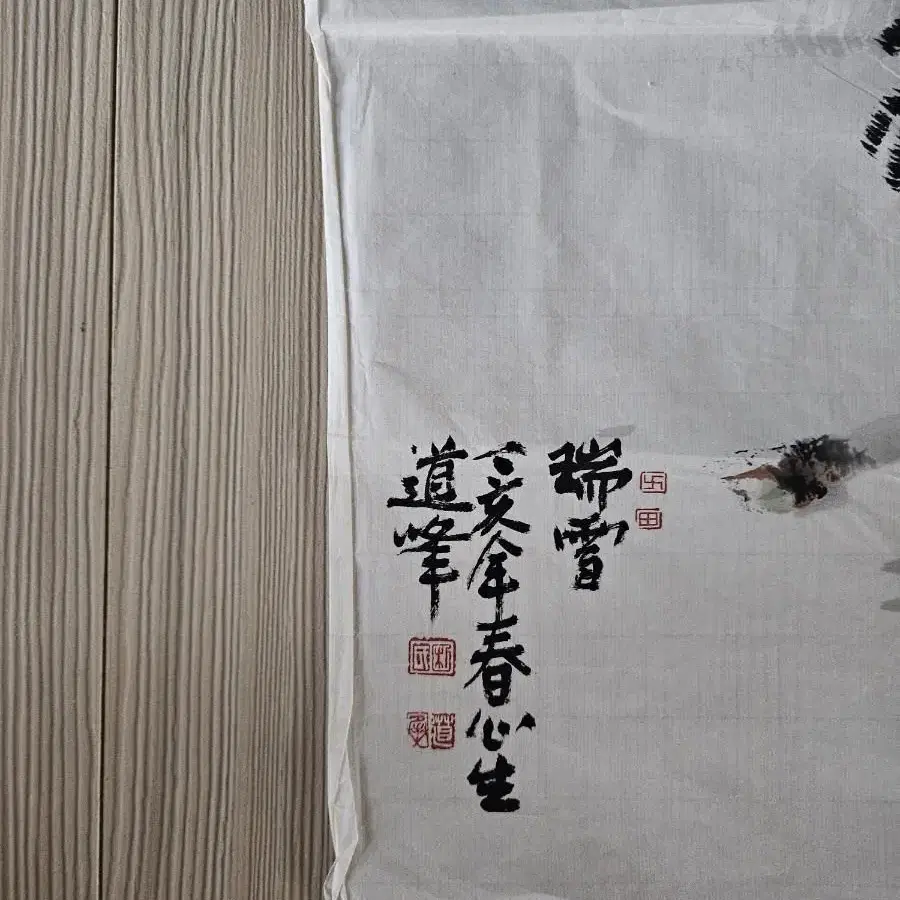 瑞雪
丁亥年春心生
道峰